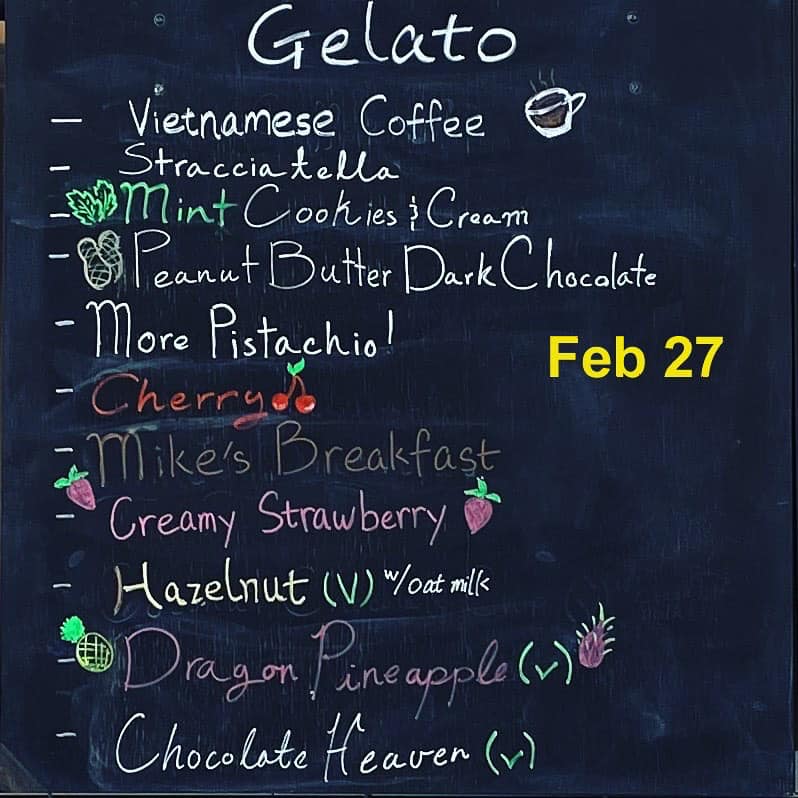 Gelato
- Vietnamese Coffee
- Stracciatella
- Mint Cookies & Cream
- Peanut Butter Dark Chocolate
- More Pistachio!
Feb 27
- Cherry
- Mike's Breakfast
- Creamy Strawberry
- Hazelnut (V) w/oat milk
- Dragon Pineapple (v)
- Chocolate Heaven (v)